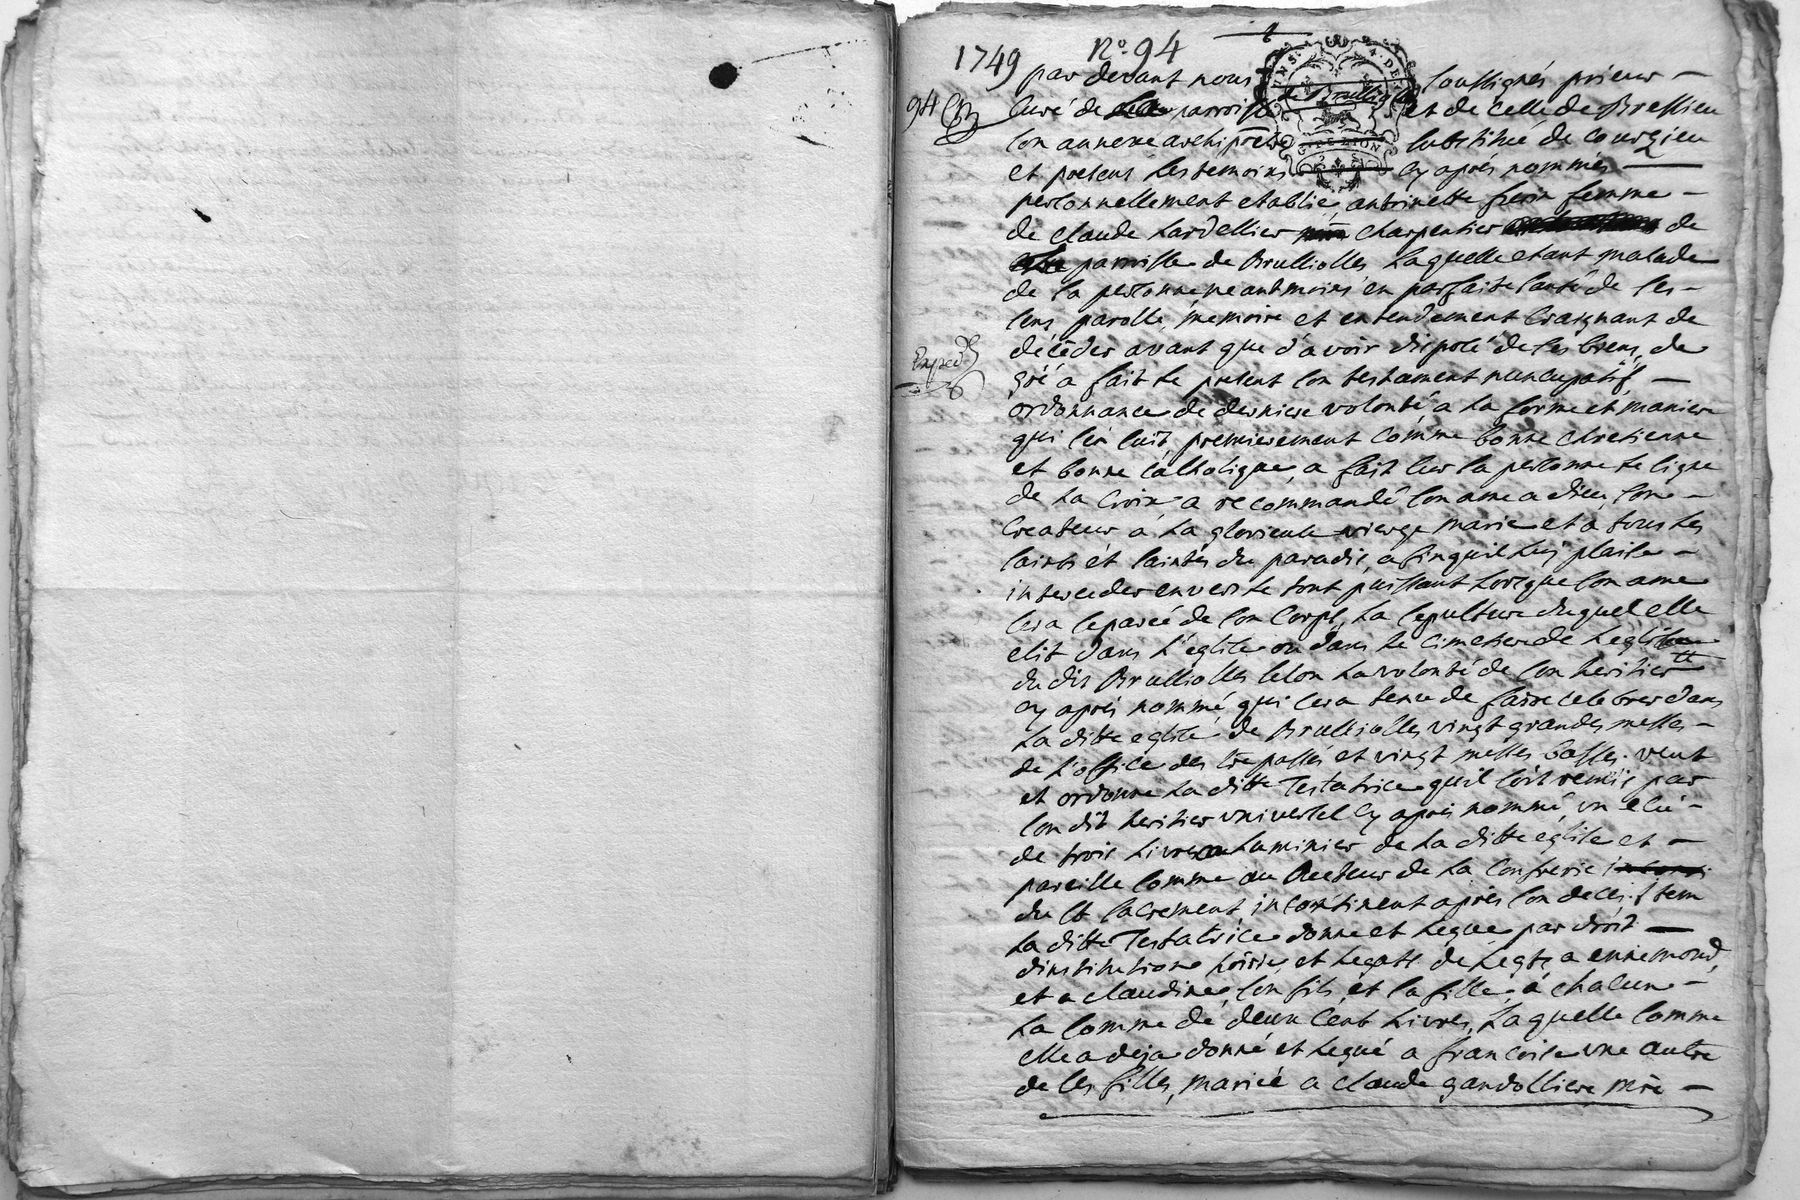 1749 N° 94
par devant nous soussignés prieur
94
curé de parroisse de Brullioles et de celle de Bressieu
son annexe archiprêtré substitué de courzieu
GE. LION
et presens les temoins cy après nommés
personnellement etablie antoinette frerin femme
de claude Lardellier charpentier de
parroisse de Brulliolles Laquelle etant malade
de sa personne neantmoins en parfaite santé de ses
sens, parolle, memoire et entendement Craignant de
décéder avant que d'avoir disposé de ses biens, de
Exped
gré a fait le present son testament nuncupatif
ordonnance de derniere volonté, a la forme et maniere
qui s'en suit, premierement Comme bonne chretienne
et bonne catholique, a fait sur sa personne le signe
de La Croix, a recommandé son ame a dieu, son
Createur a La glorieuse vierge marie et a tous les
saints et saintes du paradis, afinquil Luy plaise
interceder envers le tout puissant Lorsque son ame
sera separée de son Corps, La sepulture duquel elle
elit dans L'eglise ou dans le Cimetiere de Leglise
du dit Brulliolles selon La volonté de son heritier
cy après nommé qui sera tenu de faire celebrer dans
La ditte eglise de Brulliolles vingt grandes messes
de L'office des trepassés et vingt messes basses. veut
et ordonne La ditte Testatrice quil soit remis par
son dit heritier universel cy après nommé, un ecu
de trois Livres au Luminier de La ditte eglise et
pareille somme au Recteur de La Confrerie
du st sacrement, incontinent après son deces. Item
La ditte Testatrice donne et Legue par droit
dinstitution hoirie, et Legatt. de Legts, a ennemond,
et a claudine, son fils, et sa fille, a chacun
La somme de deux Cent Livres, Laquelle somme
elle a deja donné et Legué a francoise une autre
de ses filles, mariée a claude gandolliere mre